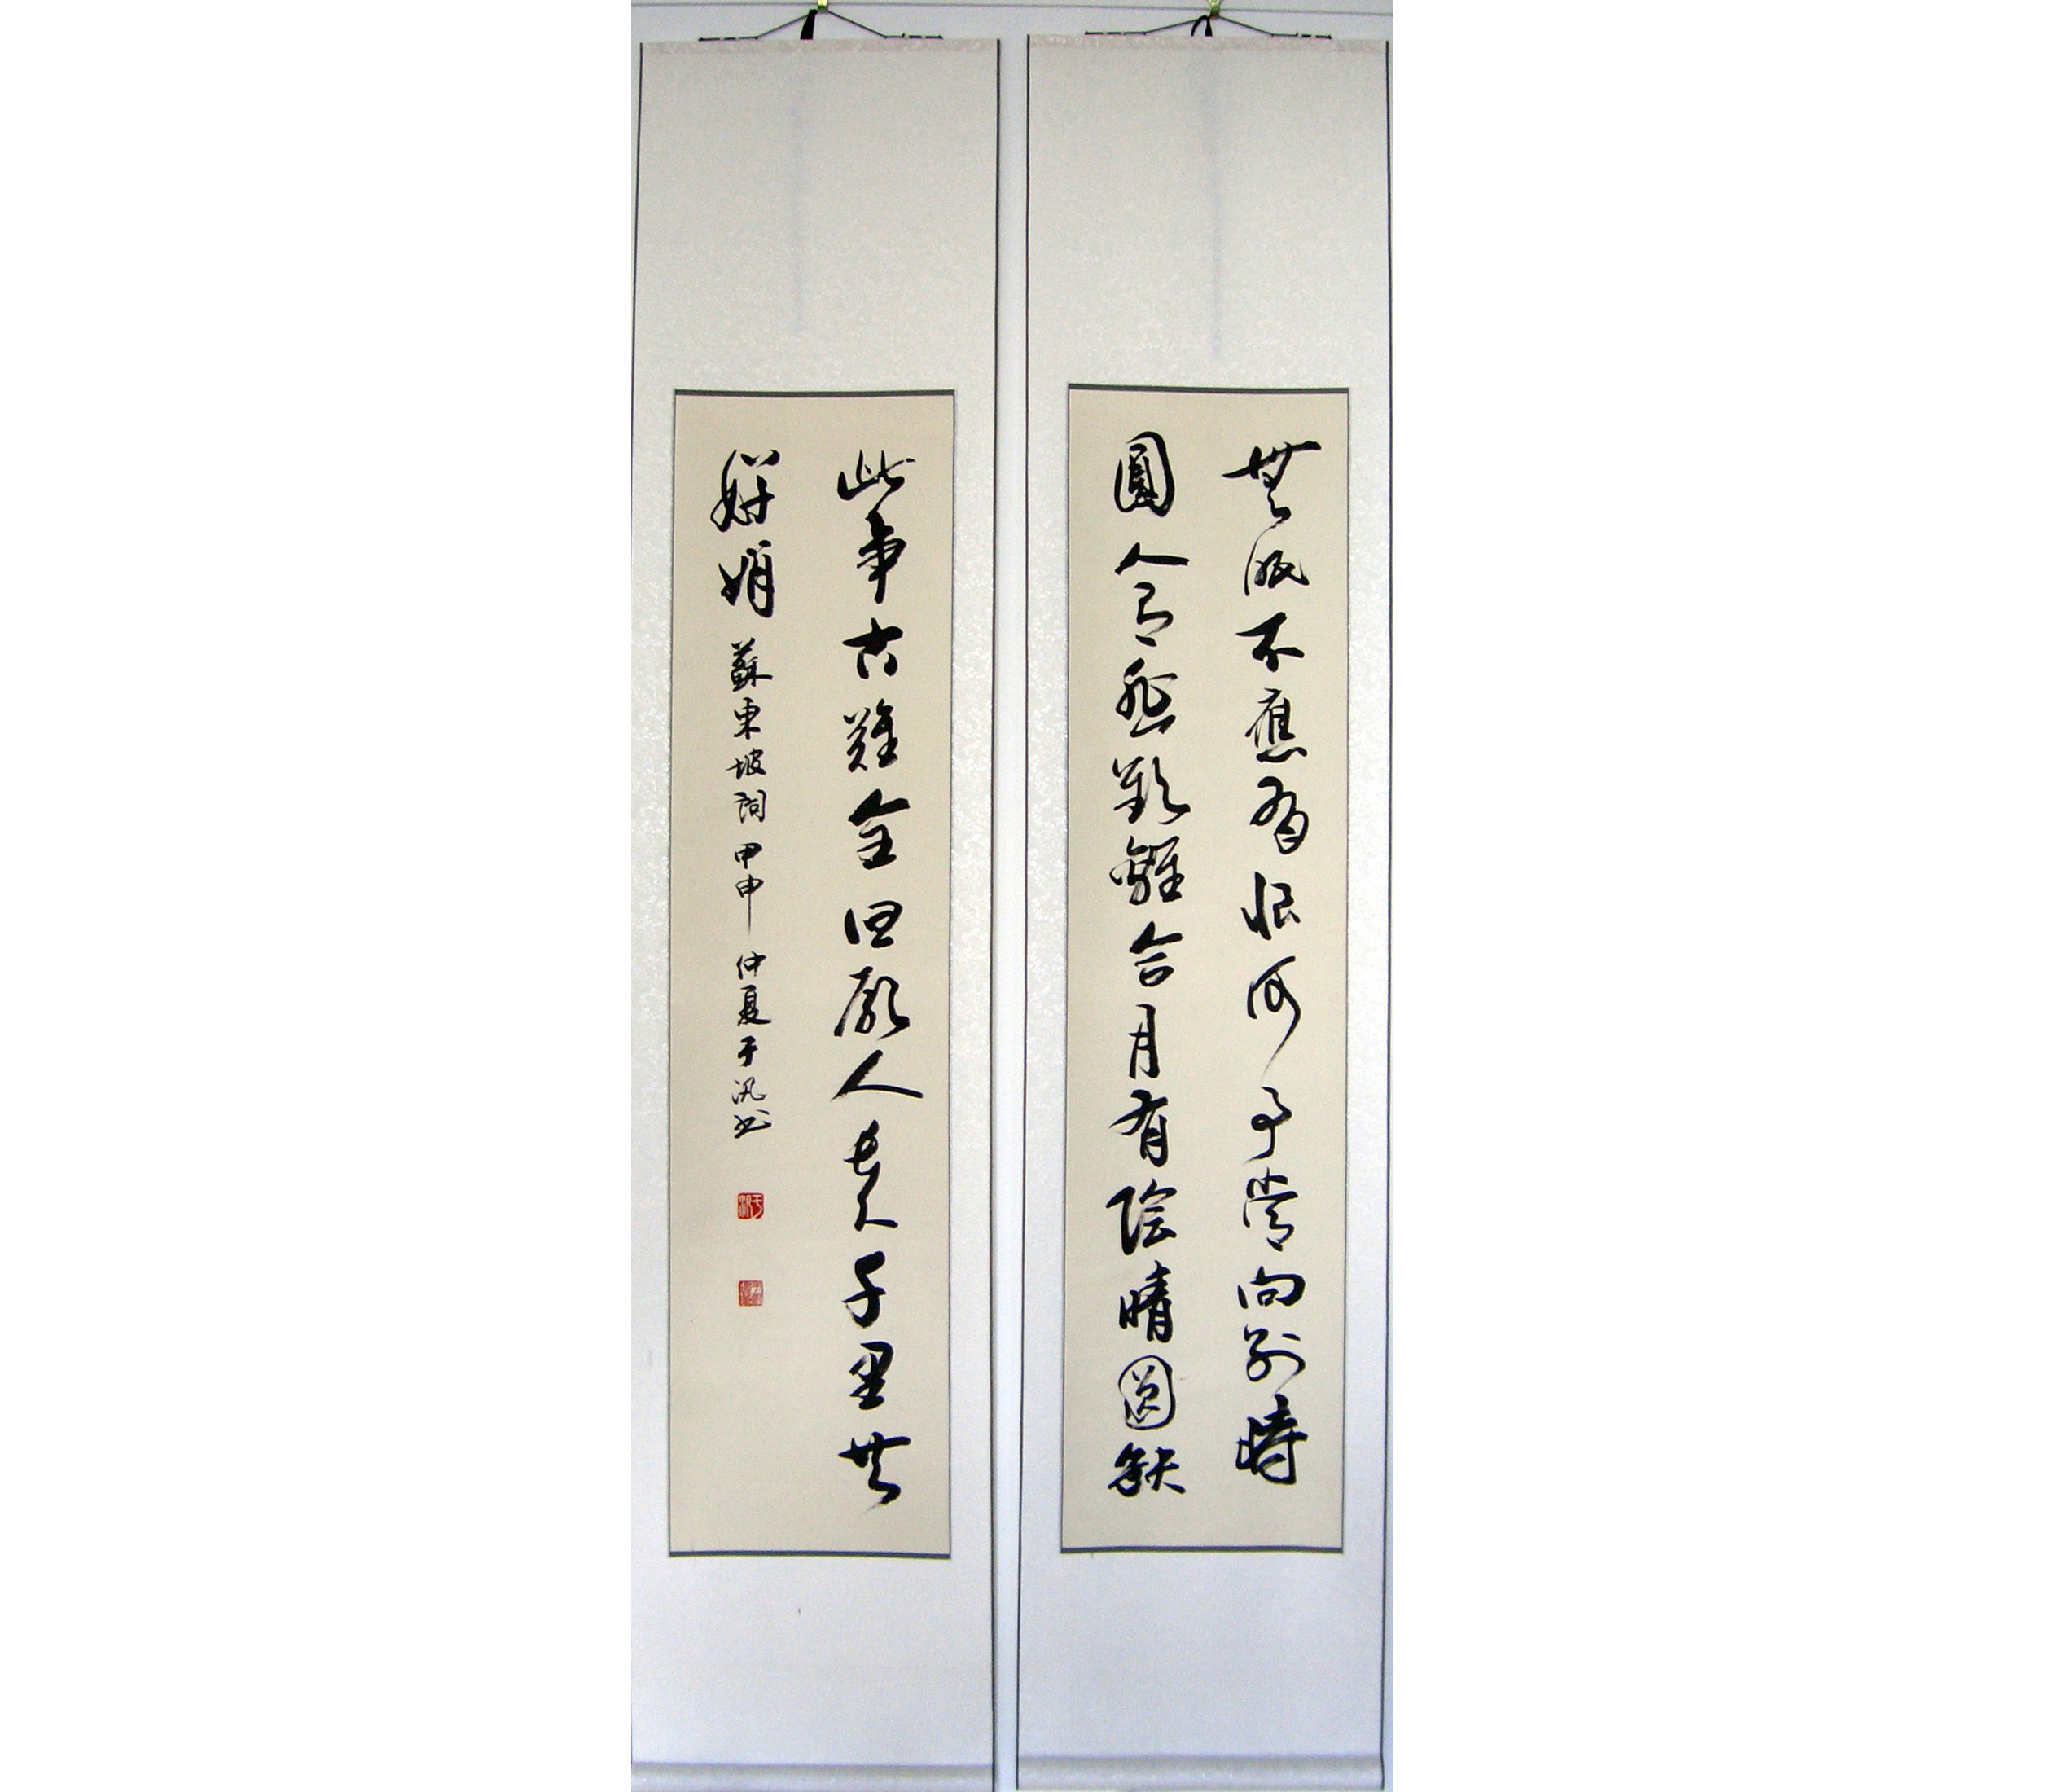 無眠不應有恨何事常向別時
圓人有悲歡離合月有陰晴圓缺
此事古難全但願人長久千里共
嬋娟 蘇東坡詞 甲申仲夏于汎书